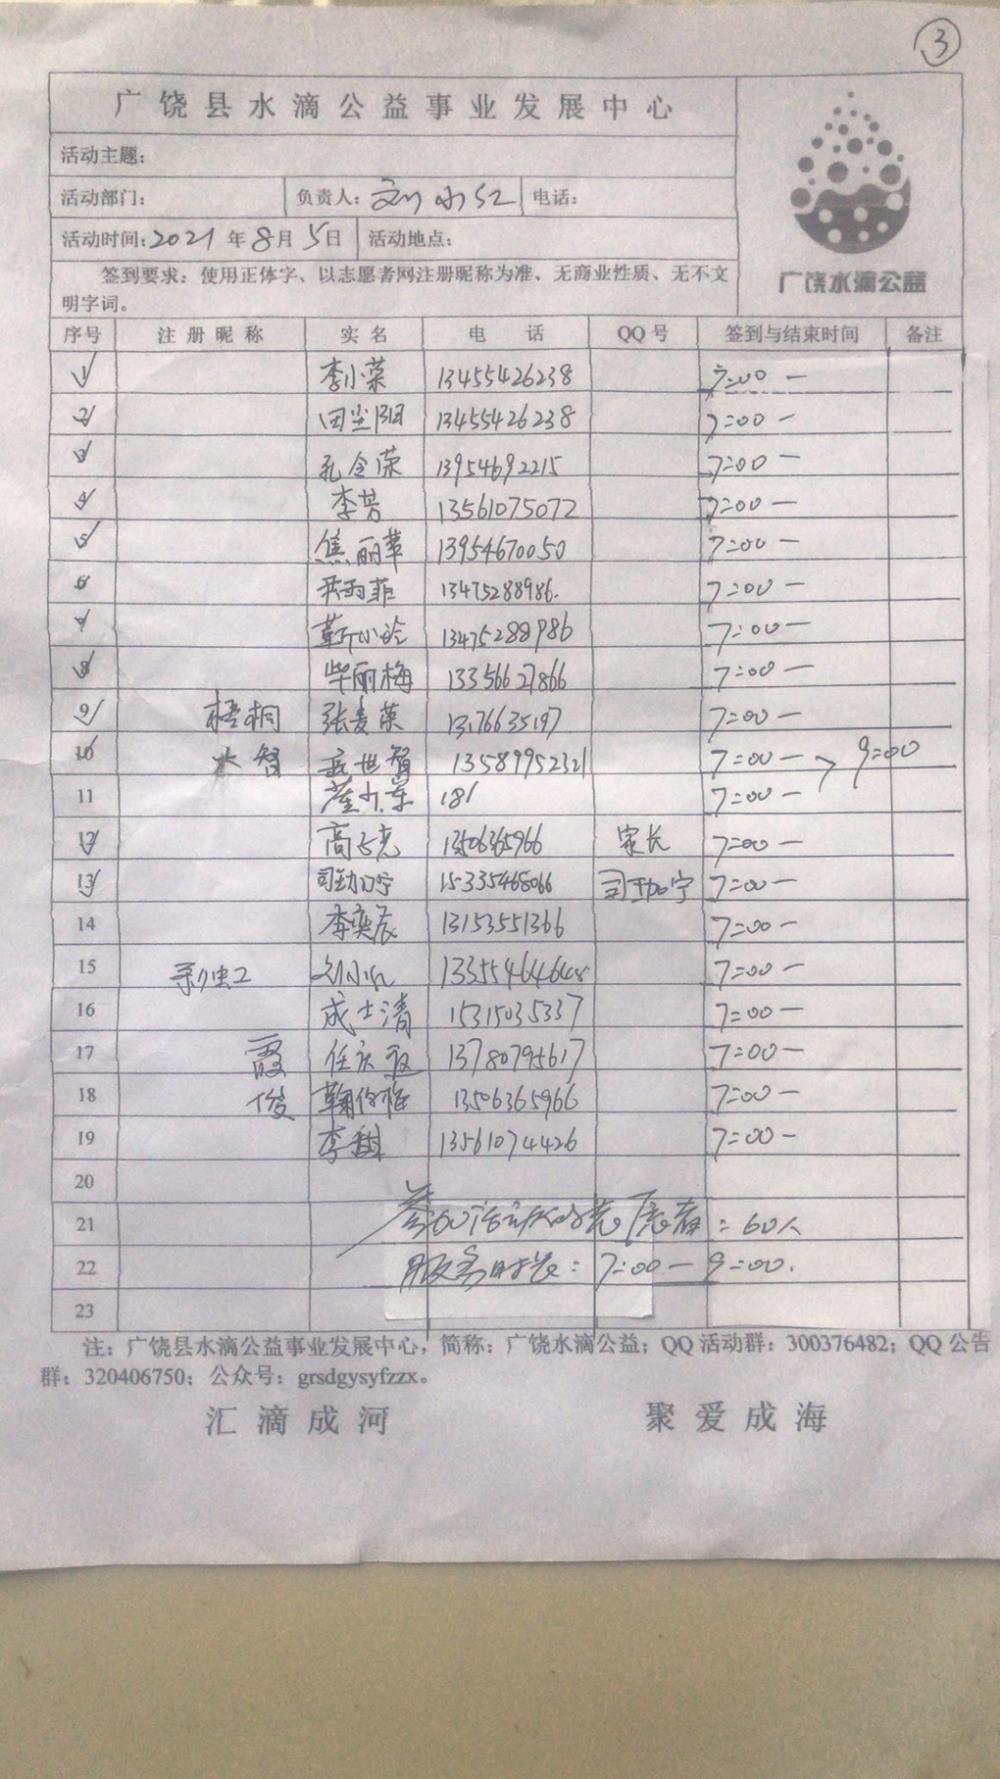 3
广饶县水滴公益事业发展中心
活动主题：
活动部门： 负责人：刘小红 电话：
活动时间：2021年8月5日 活动地点：
签到要求：使用正体字、以志愿者网注册昵称为准、无商业性质、无不文
明字词。
广饶水滴公益
序号 注册昵称 实名 电话 QQ号 签到与结束时间 备注
1 李小荣 13455426238 7:00 —
2 田尘阳 13455426238 7:00 —
3 孔令荣 13954692215 7:00 —
4 李芳 13561075072 7:00 —
5 焦丽苹 13954670050 7:00 —
6 雨菲 13475288986. 7:00 —
7 靳小玲 13475288986 7:00 —
8 毕丽梅 13356627866 7:00 —
9 梧桐 张麦荣 13176635197 7:00 —
10 大智 世智 13589952321 7:00 — 9:00
11 181 7:00 —
12 高 13506365966 家长 7:00 —
13 司加宁 15335468066 司加宁 7:00 —
14 李奕辰 13153551366 7:00 —
15 刘小红 7:00 —
16 成士清 15315035337 7:00 —
17 霞 任庆霞 13780795617 7:00 —
18 俊 鞠俊雅 13506365966 7:00 —
19 李 13561074426 7:00 —
20
21 参加活动的志愿者：60人
22 服务时长：7:00 — 9:00.
23
注：广饶县水滴公益事业发展中心，简称：广饶水滴公益；QQ活动群：300376482；QQ公告
群：320406750；公众号：grsdgysyfzzx。
汇滴成河 聚爱成海